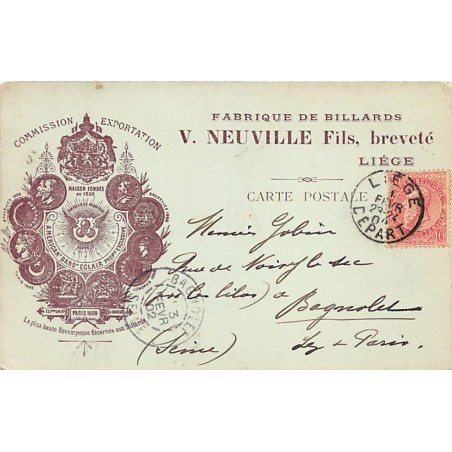 COMMISSION EXPORTATION
MAISON FONDÉE
en 1850
AMÉRICAN-BAND "ÉCLAIR"
PARIS 1889
La plus haute Récompense Décernée aux Billards
FABRIQUE DE BILLARDS
V. NEUVILLE Fils, breveté
LIÉGE
CARTE POSTALE
LIÈGE
DÉPART
10
Monsieur Gobin
Rue de Noisy le sec
(les lilas) à
Bagnolet
(Seine) Lez-Paris
BAGNOLET
3
FEVR
02